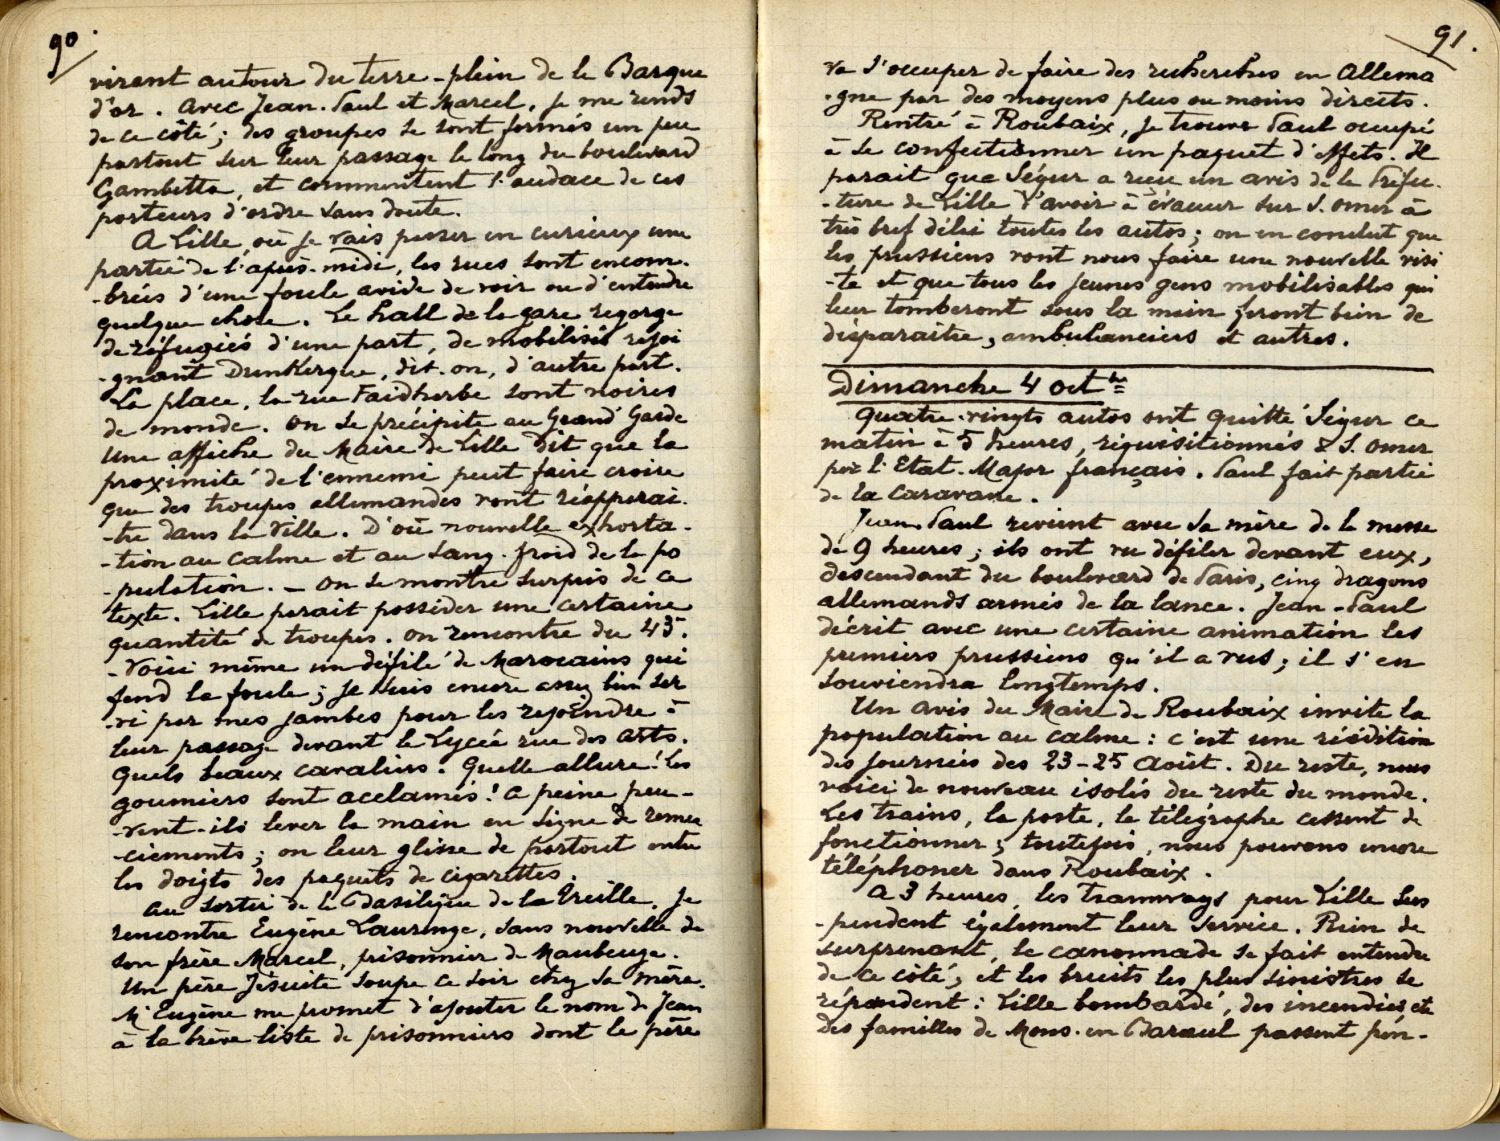 90.
virent autour du terre-plein de la Barque
d'or. Avec Jean-Paul et Marcel, je me rends
de ce côté; des groupes se sont formés un peu
partout sur leur passage le long du boulevard
Gambetta, et commentent l'audace de ces
porteurs d'ordre sans doute.
A Lille, où je vais passer en curieux une
partie de l'après-midi, les rues sont encom-
-brées d'une foule avide de voir ou d'entendre
quelque chose. Le hall de la gare regorge
de réfugiés d'une part, de mobilisés rejoi
-gnant Dunkerque, dit-on, d'autre part.
La place, la rue Faidherbe sont noires
de monde. On se précipite au Grand'Garde
Une affiche du Maire de Lille dit que la
proximité de l'ennemi peut faire croire
que des troupes allemandes vont réapparai-
-tre dans la Ville. D'où nouvelle exhorta-
-tion au calme et au sang-froid de la po
-pulation. — On se montre surpris de ce
texte. Lille parait posséder une certaine
quantité de troupes. On rencontre du 43.
-Voici même un défilé de Marocains qui
fend la foule; je suis encore assez bien ser
-vi par mes jambes pour les rejoindre à
leur passage devant le Lycée rue des Arts.
Quels beaux cavaliers! Quelle allure! Les
goumiers sont acclamés! A peine peu-
-vent-ils lever la main en signe de remer
-ciements; on leur glisse de partout entre
les doigts des paquets de cigarettes.
Au sortir de la Basilique de la Treille, je
rencontre Eugène Laurenge, sans nouvelle de
son frère Marcel, prisonnier de Maubeuge.
Un père Jésuite soupe ce soir chez sa mère.
Mr Eugène me promet d'ajouter le nom de Jean
à la brève liste de prisonniers dont le père
91.
va s'occuper de faire des recherches en Allema
-gne par des moyens plus ou moins directs.
Rentré à Roubaix, je trouve Paul occupé
à se confectionner un paquet d'effets. Il
parait que Ségur a reçu un avis de la Préfec-
-ture de Lille d'avoir à évacuer sur S. Omer à
très bref délai toutes les autos; on en conclut que
les prussiens vont nous faire une nouvelle visi
-te et que tous les jeunes gens mobilisables qui
leur tomberont sous la main feront bien de
disparaitre, ambulanciers et autres.
Dimanche 4 octbre
Quatre-vingts autos ont quitté Ségur ce
matin à 5 heures, réquisitionnés à S. Omer
par l'Etat-Major français. Paul fait partie
de la caravane.
Jean-Paul revient avec sa mère de la messe
de 9 heures; ils ont vu défiler devant eux,
descendant du boulevard de Paris, cinq dragons
allemands armés de la lance. Jean-Paul
décrit avec une certaine animation les
premiers prussiens qu'il a vus; il s'en
souviendra longtemps.
Un avis du Maire de Roubaix invite la
population au calme: c'est une réédition
des journées des 23-25 Août. Du reste, nous
voici de nouveau isolés du reste du monde.
Les trains, la poste, le télégraphe cessent de
fonctionner; toutefois, nous pouvons encore
téléphoner dans Roubaix.
A 3 heures, les tramways pour Lille sus
-pendent également leur service. Rien de
surprenant, la canonnade se fait entendre
de ce côté, et les bruits les plus sinistres se
répandent: Lille bombardé, des incendies, etc
Des familles de Mons-en-Baroeul passent pen-